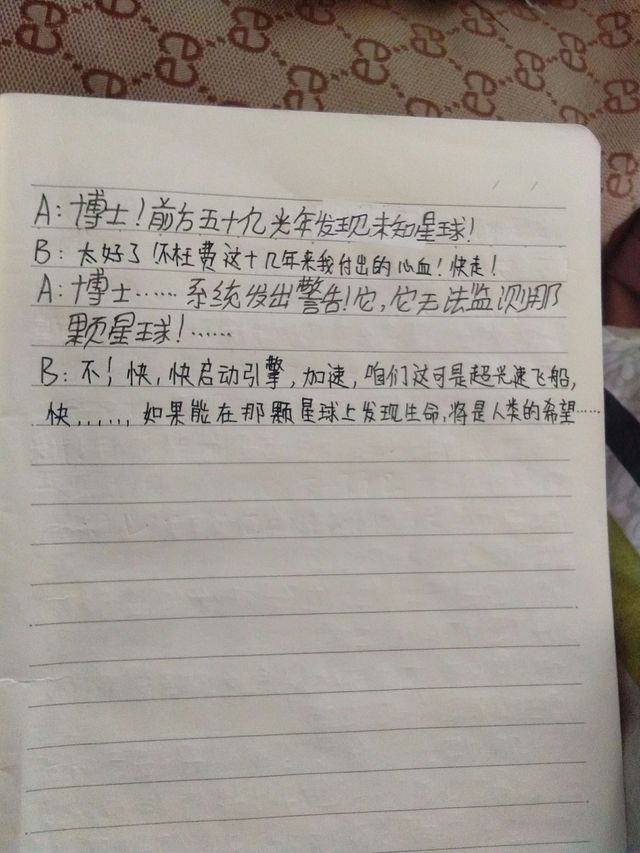 A：博士！前方五十亿光年发现未知星球！
B：太好了！不枉费这十几年来我付出的心血！快走！
A：博士……系统发出警告！它，它无法监测那
颗星球！……
B：不！快，快启动引擎，加速，咱们这可是超光速飞船，
快，……，如果能在那颗星球上发现生命，将是人类的希望……